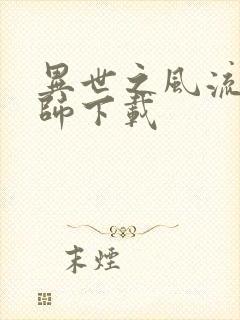 異世之風流
師下載
末煙